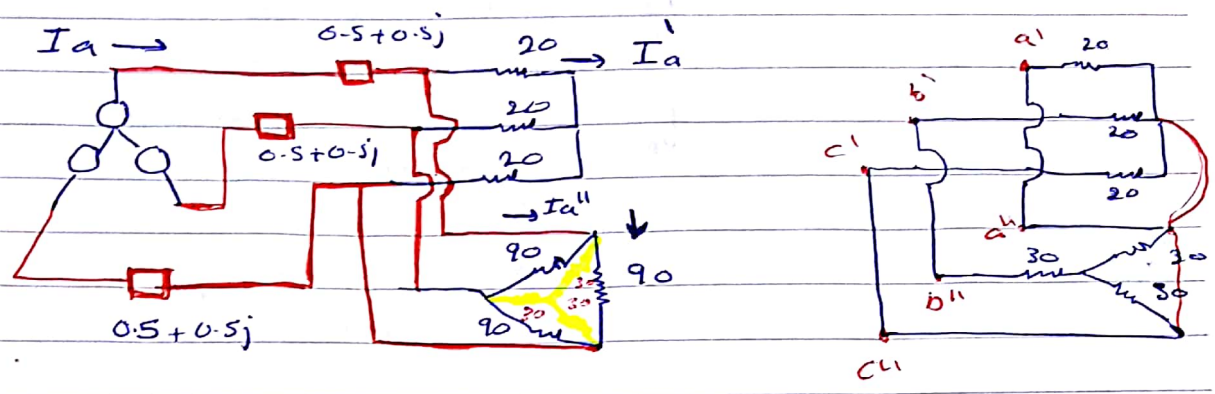 Ia → 0.5+0.5j 20 → Ia'
20
0.5+0.5j
20
→ Ia"
90
30
90
30
30
90
0.5+0.5j
a' 20
b'
20
c'
20
a"
30
30
b"
30
c"